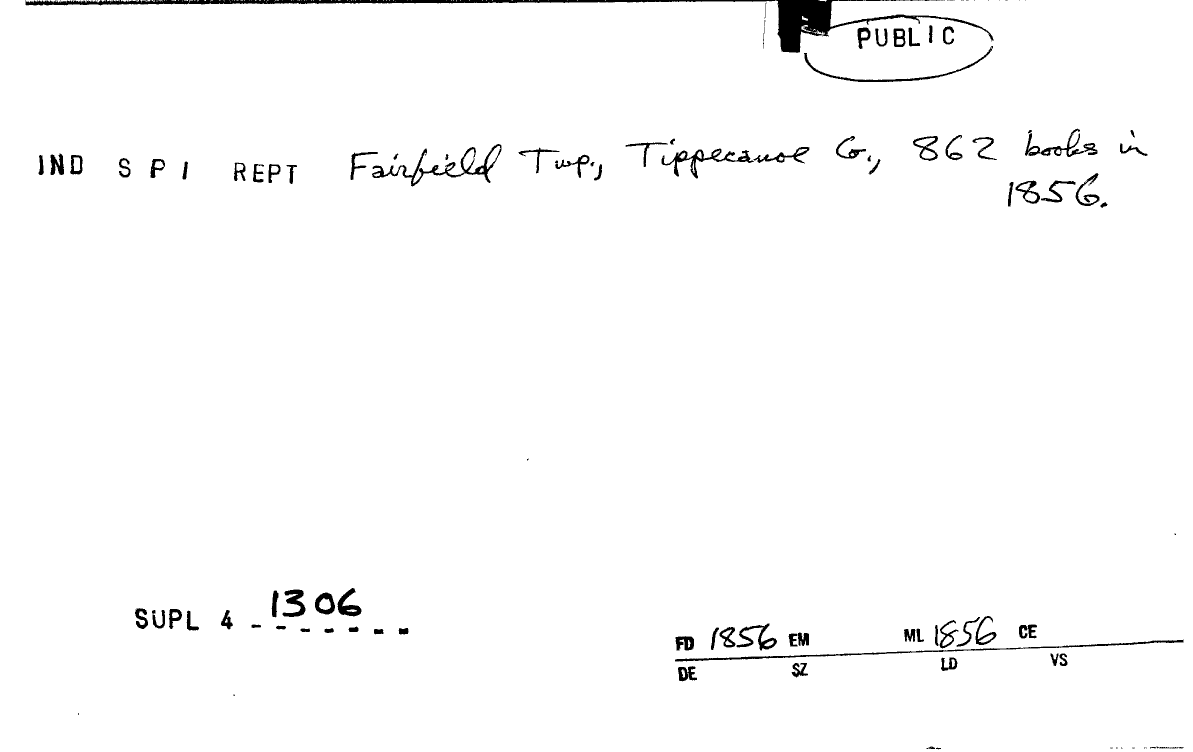 PUBLIC
IND S P I REPT Fairfield Twp., Tippecanoe Co., 862 books in
1856.
SUPL 4 - 1306
FD 1856 EM ML 1856 CE
DE SZ LD VS